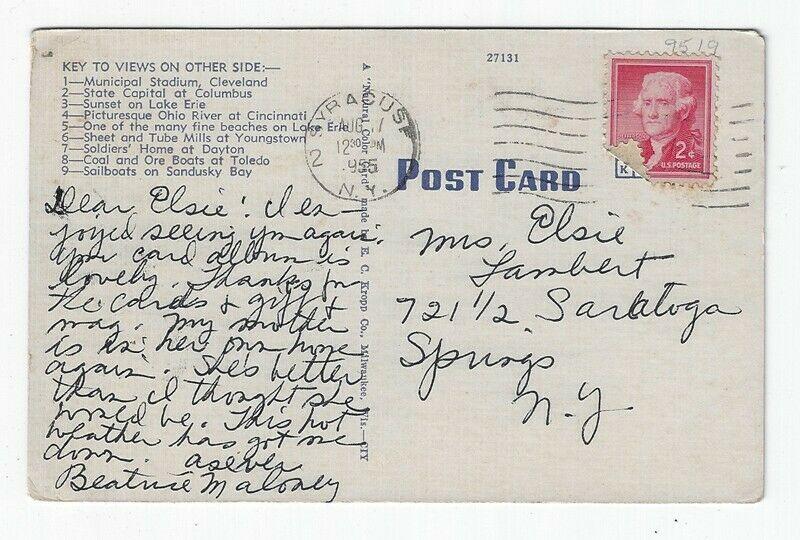 KEY TO VIEWS ON OTHER SIDE:—
1—Municipal Stadium, Cleveland
2—State Capital at Columbus
3—Sunset on Lake Erie
4—Picturesque Ohio River at Cincinnati
5—One of the many fine beaches on Lake Erie
6—Sheet and Tube Mills at Youngstown
7—Soldiers' Home at Dayton
8—Coal and Ore Boats at Toledo
9—Sailboats on Sandusky Bay
Dear Elsie! I en-
joyed seeing you again.
Your card album is
lovely. Thanks for
the cards & gift &
mag. My mother
is in her own home
again. She's better
than I thought she
would be. This hot
weather has got me
down. as ever
Beatrice Maloney
A "Natural Color Card" made by E. C. Kropp Co., Milwaukee, Wis.—CIY
SYRACUSE
AUG 1
12 30 PM
1955
2 N.Y.
27131
9519
2¢
U.S. POSTAGE
POST CARD
Mrs. Elsie
Lambert
721 1/2 Saratoga
Springs
N.Y.